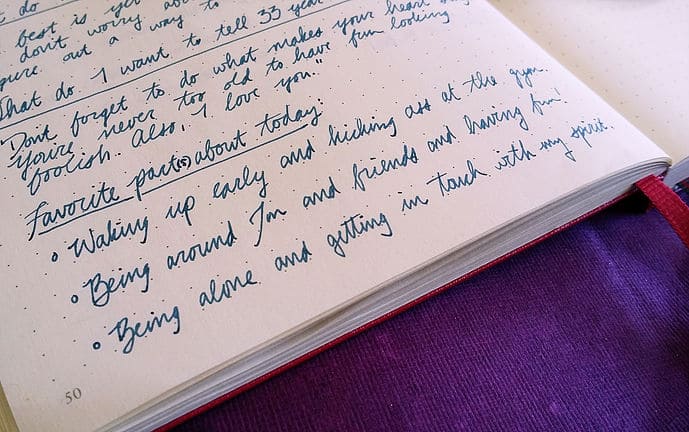 do
best is yet
don't worry abo
gure out a way to
What do I want to tell 33 year
"Dont forget to do what makes your heart
you're never too old to have fun looking
foolish. Also, I love you."
Favorite part(s) about today:
• Waking up early and kicking ass at the gym.
• Being around Jm and friends and having fun!
• Being alone and getting in touch with my spirit.
50